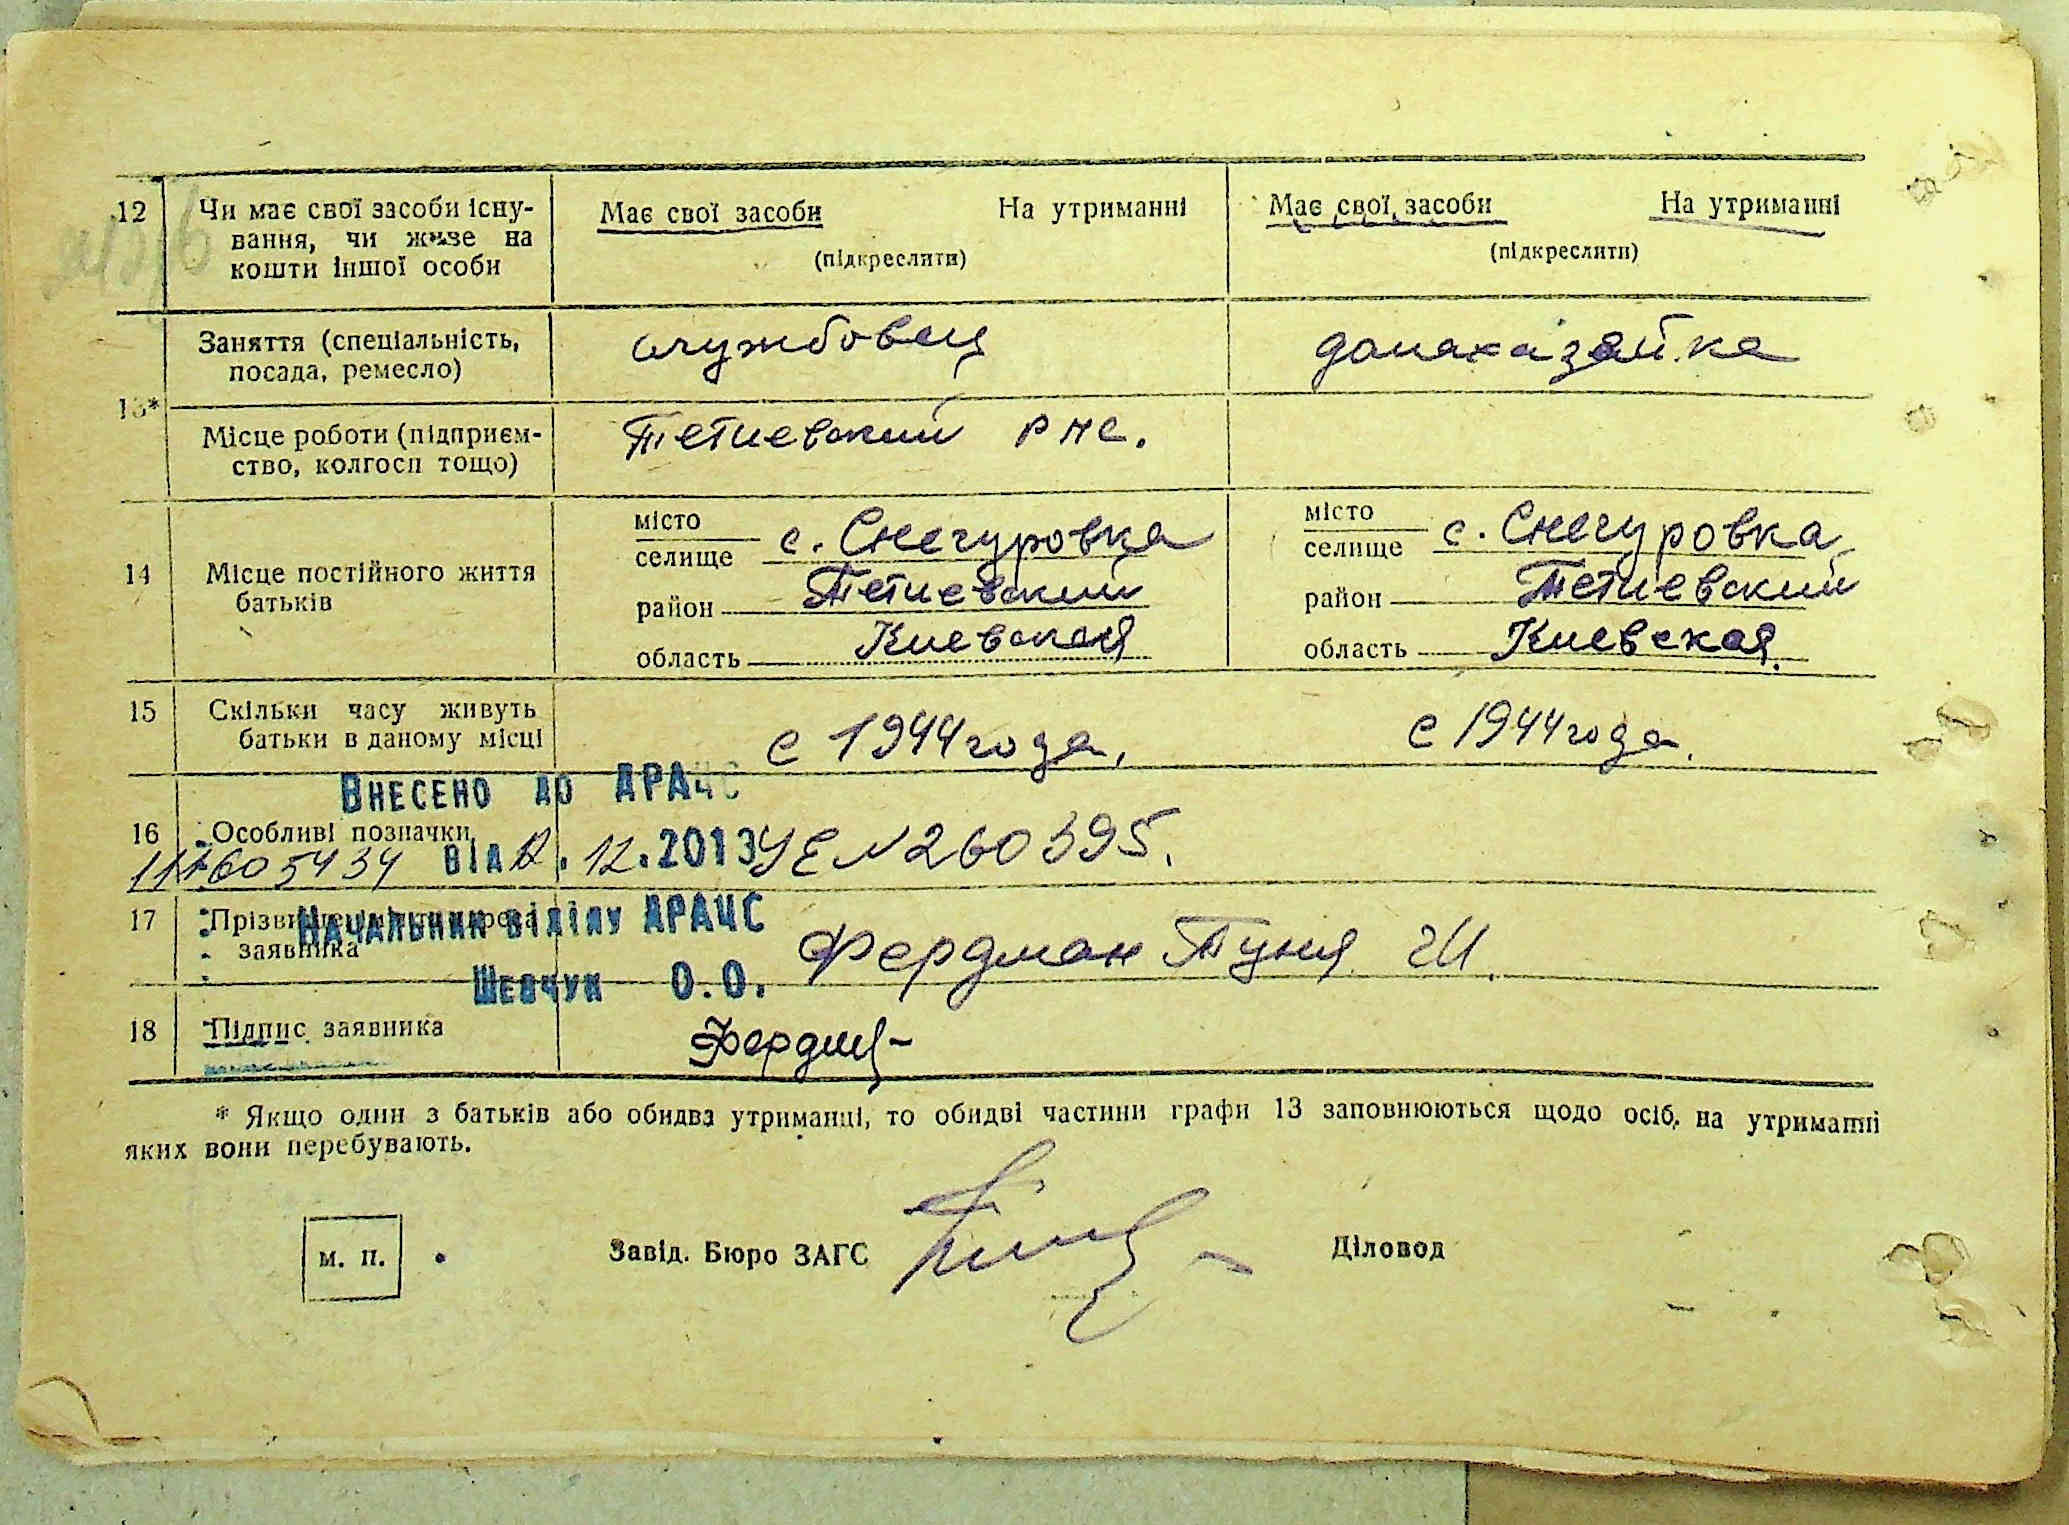 12 Чи має свої засоби існу- Має свої засоби На утриманні Має свої засоби На утриманні
вання, чи живе на
кошти іншої особи (підкреслити) (підкреслити)
13*
Заняття (спеціальність, службовец домахазяйка
посада, ремесло)
Місце роботи (підприєм- Тетиевский
ство, колгосп тощо)
14 Місце постійного життя
батьків
місто
селище с. Снегуровка
район Тетиевский
область Киевская
місто
селище с. Снегуровка
район Тетиевский
область Киевская
15 Скільки часу живуть с 1944 года, с 1944 года.
батьки в даному місці
Внесено до ДРАЦС
16 Особливі позначки
від 12.2013 № 260395.
17 Прізвище
заявника Фердман Туня И.
Начальник відділу ДРАЦС
Шевчук О.О.
18 Підпис заявника
* Якщо один з батьків або обидва утриманці, то обидві частини графи 13 заповнюються щодо осіб, на утриманні
яких вони перебувають.
м. п. Завід. Бюро ЗАГС Діловод